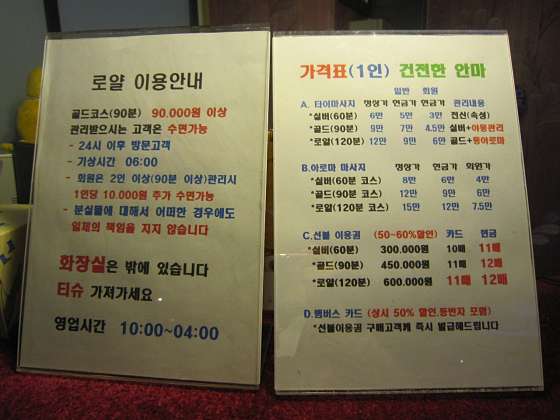 로얄 이용안내
골드코스(90분) 90.000원 이상
관리받으시는 고객은 수면가능
- 24시 이후 방문고객
- 기상시간 06:00
- 회원은 2인 이상(90분 이상)관리시
1인당 10.000원 추가 수면가능
- 분실물에 대해서 어떠한 경우에도
일체의 책임을 지지 않습니다
화장실은 밖에 있습니다
티슈 가져가세요
영업시간 10:00~04:00
가격표(1인) 건전한 안마
일반 회원
A. 타이마사지 정상가 현금가 현금가 관리내용
*실버(60분) 6만 5만 3만 전신(속성)
*골드(90분) 9만 7만 4.5만 실버+
*로얄(120분) 12만 9만 6만 골드+
B.아로마 마사지 정상가 현금가 회원가
*실버(60분 코스) 8만 6만 4만
*골드(90분 코스) 12만 9만 6만
*로얄(120분 코스) 15만 12만 7.5만
C.선불 이용권 (50~60%할인) 카드 현금
*실버(60분) 300.000원 10매 11매
*골드(90분) 450.000원 11매 12매
*로얄(120분) 600.000원 11매 12매
D.멤버스 카드 (상시 50% 할인.동반자 포함)
*선불이용권 구매고객께 즉시 발급해드립니다